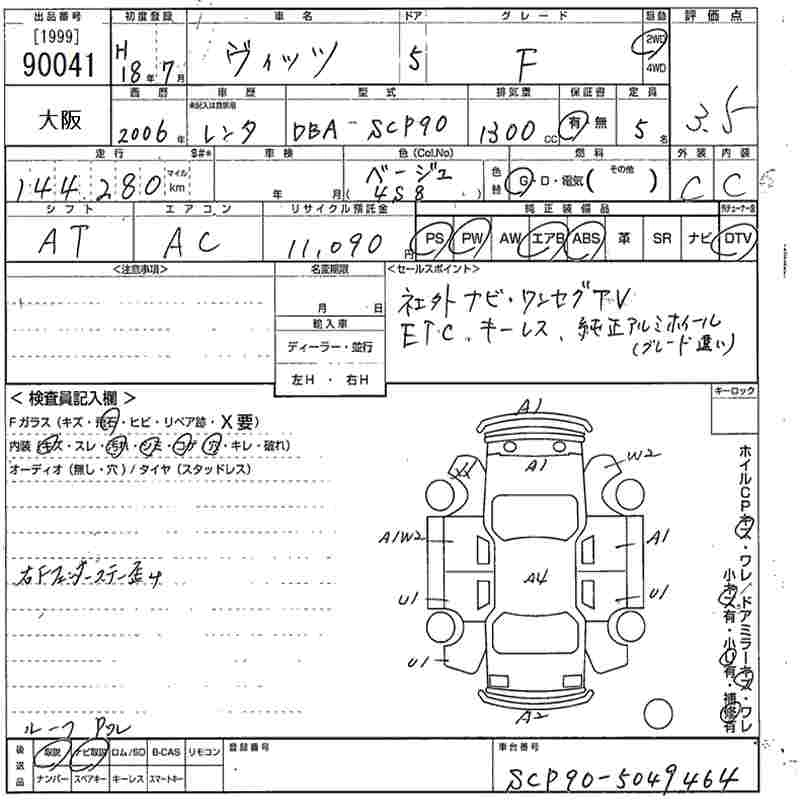 出品番号 初度登録 車名 ドア グレード 駆動 評価点
[1999]
90041 H 18年 7月 ヴィッツ 5 F 2WD 4WD 3.5
大阪 西暦 車歴 型式 排気量 保証書 定員
未記入は自家用
2006年 レンタ DBA-SCP90 1300cc 有・無 5名
走行 $#* 車検 色(Col.No) 燃料 外装 内装
144,280 マイル km 年 月 ベージュ (4S8) 色替 G・D・電気( その他 ) C C
シフト エアコン リサイクル預託金 純正装備品
AT AC 11,090円 PS PW AW エアB ABS 革 SR ナビ DTV
<注意事項> 名変期限 <セールスポイント>
月 日
輸入車
ディーラー・並行
左H・右H
社外ナビ・ワンセグTV
ETC、キーレス、純正アルミホイール
(グレード違い)
キーロック
<検査員記入欄>
Fガラス(キズ・飛石・ヒビ・リペア跡・X要)
内装(キズ・スレ・汚れ・シミ・コゲ・穴・キレ・破れ)
オーディオ(無し・穴)/タイヤ(スタッドレス)
右Fフェンダーステー歪サ
ルーフ Pアレ
A1
A1
XX
W2
A1W2
A1
A4
U1
U1
U1
A2
ホイルCPキズ・ワレ/ドアミラーキズ・ワレ
小キズ有・小U有・補修有
後送品 取説 ナビ取説 ロム/SD B-CAS リモコン 登録番号 車台番号
ナンバー スペアキー キーレス スマートキー
SCP90-5049464